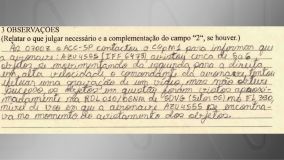 3 OBSERVAÇÕES
(Relatar o que julgar necessário e a complementação do campo "2", se houver.)
Às 0700Z o ACC-SP contactou o COpM1 para informar que
a aeronave AZU4555 (IFF 6473) avistou cerca de 5 a 6
objetos se movimentando da esquerda para a direita
em alta velocidade, o comandante da aeronave tentou
uma gravação de um vídeo mas não obteve
sucesso, os objetos em questão foram vistos aproxi-
madamente na RDL 010/06NM de no FL 350,
nível de voo em que a aeronave AZU4555 se encontra-
va no momento do avistamento dos objetos.